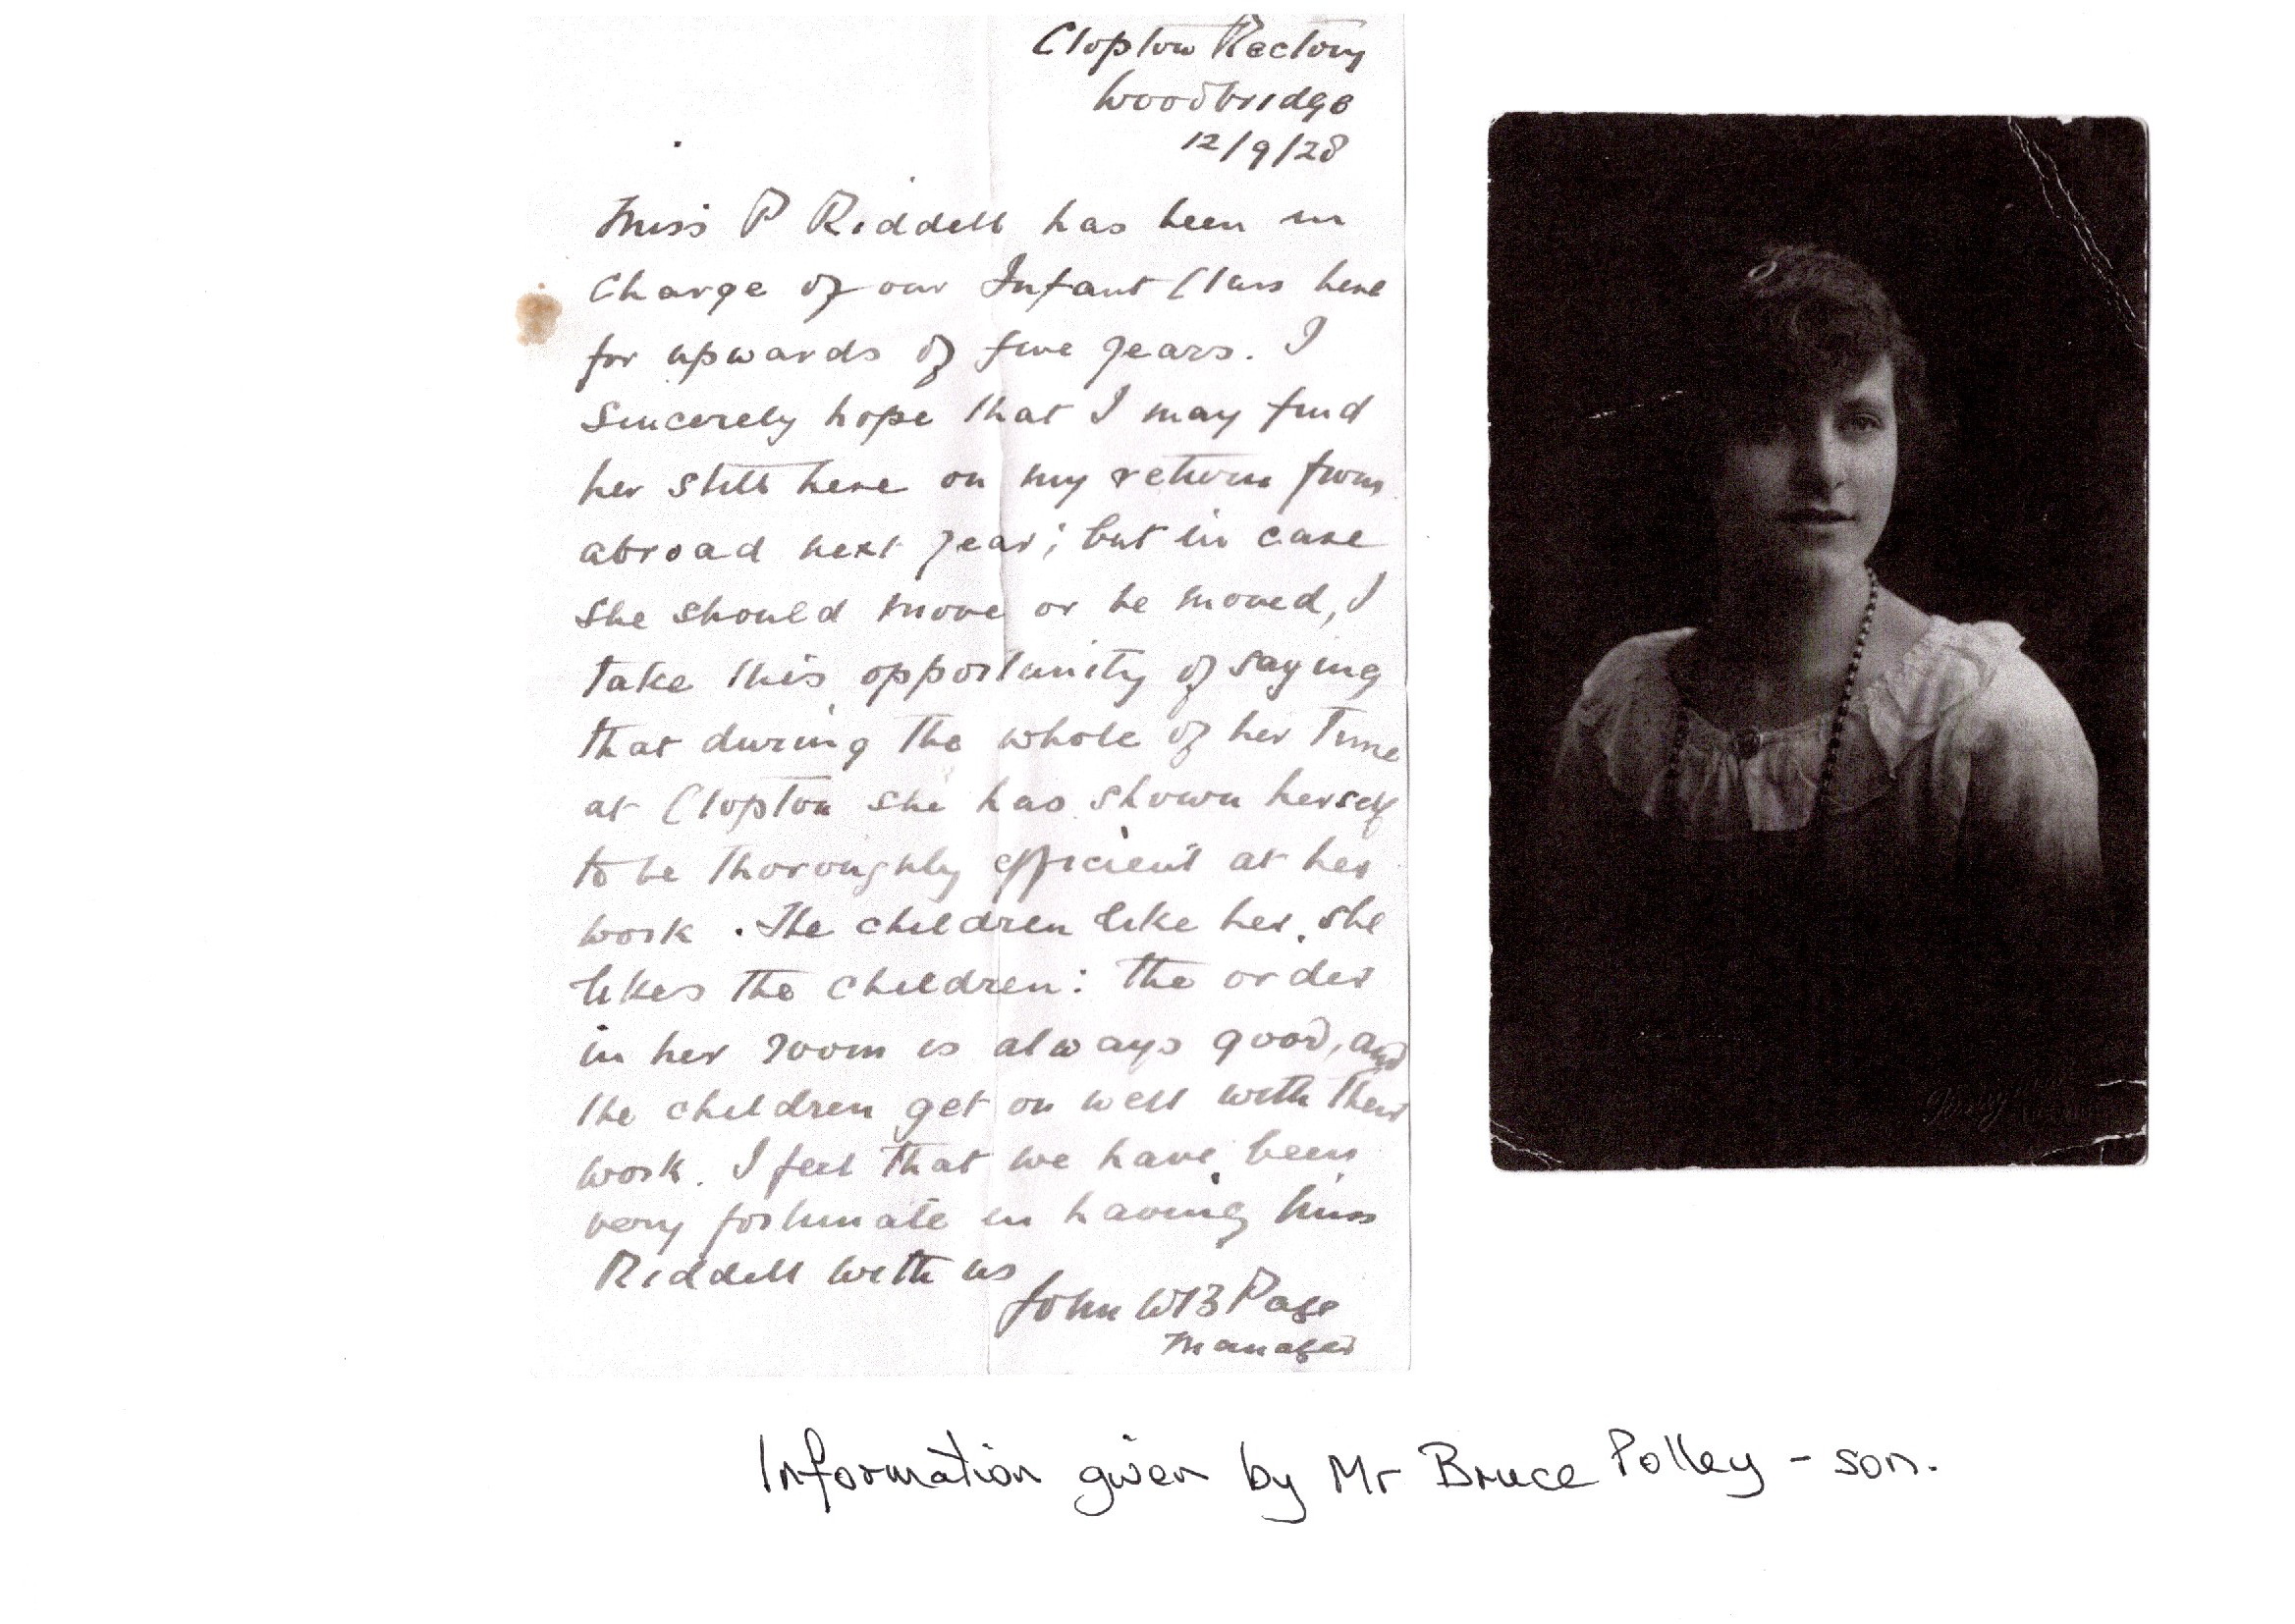 Clopton Rectory
Woodbridge
12/9/28
Miss P Riddell has been in
charge of our Infant Class here
for upwards of five years. I
sincerely hope that I may find
her still here on my return from
abroad next year; but in case
she should move or be moved, I
take this opportunity of saying
that during the whole of her time
at Clopton she has shown herself
to be thoroughly efficient at her
work. The children like her, she
likes the children: the order
in her room is always good, and
the children get on well with their
work. I feel that we have been
very fortunate in having Miss
Riddell with us
John WB Page
Manager
Information given by Mr Bruce Polley - son.